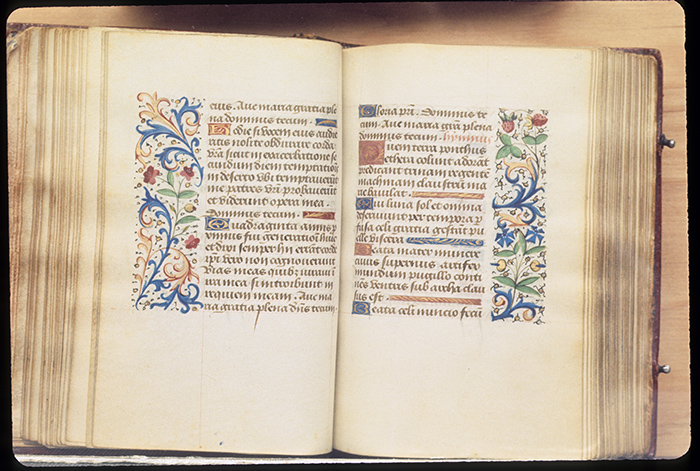 eius. Ave maria gratia ple
na dominus tecum.
Hodie si vocem eius audie
ritis nolite obdurare corda
vra sicut in exacerbatione se
cundum diem temptationis
in deserto ubi temptaverunt
me patres vri probaverunt
et viderunt opera mea.
Dominus tecum.
Quadraginta annis p
ximus fui generationi huic
et dixi semper hi errant corde
ipsi vero non cognoverunt
vias meas quibus iuravi in
ira mea si introibunt in
requiem meam. Ave ma
ria gratia plena dns tecum.
Gloria pri. Dominus te
cum. Ave maria gra plena
dominus tecum. hymnus
Quem terra ponthus
ethera colunt adorant
predicant trinam regente
machinam claustru ma
rie baiulat.
Cui luna sol et omnia
deserviunt per tempora p
fusa celi gratia gestant pu
elle viscera.
Beata mater munere
cuius supernus artifex
mundum pugillo conti
nens ventris sub archa clau
sus est.
Beata celi nuncio fecun